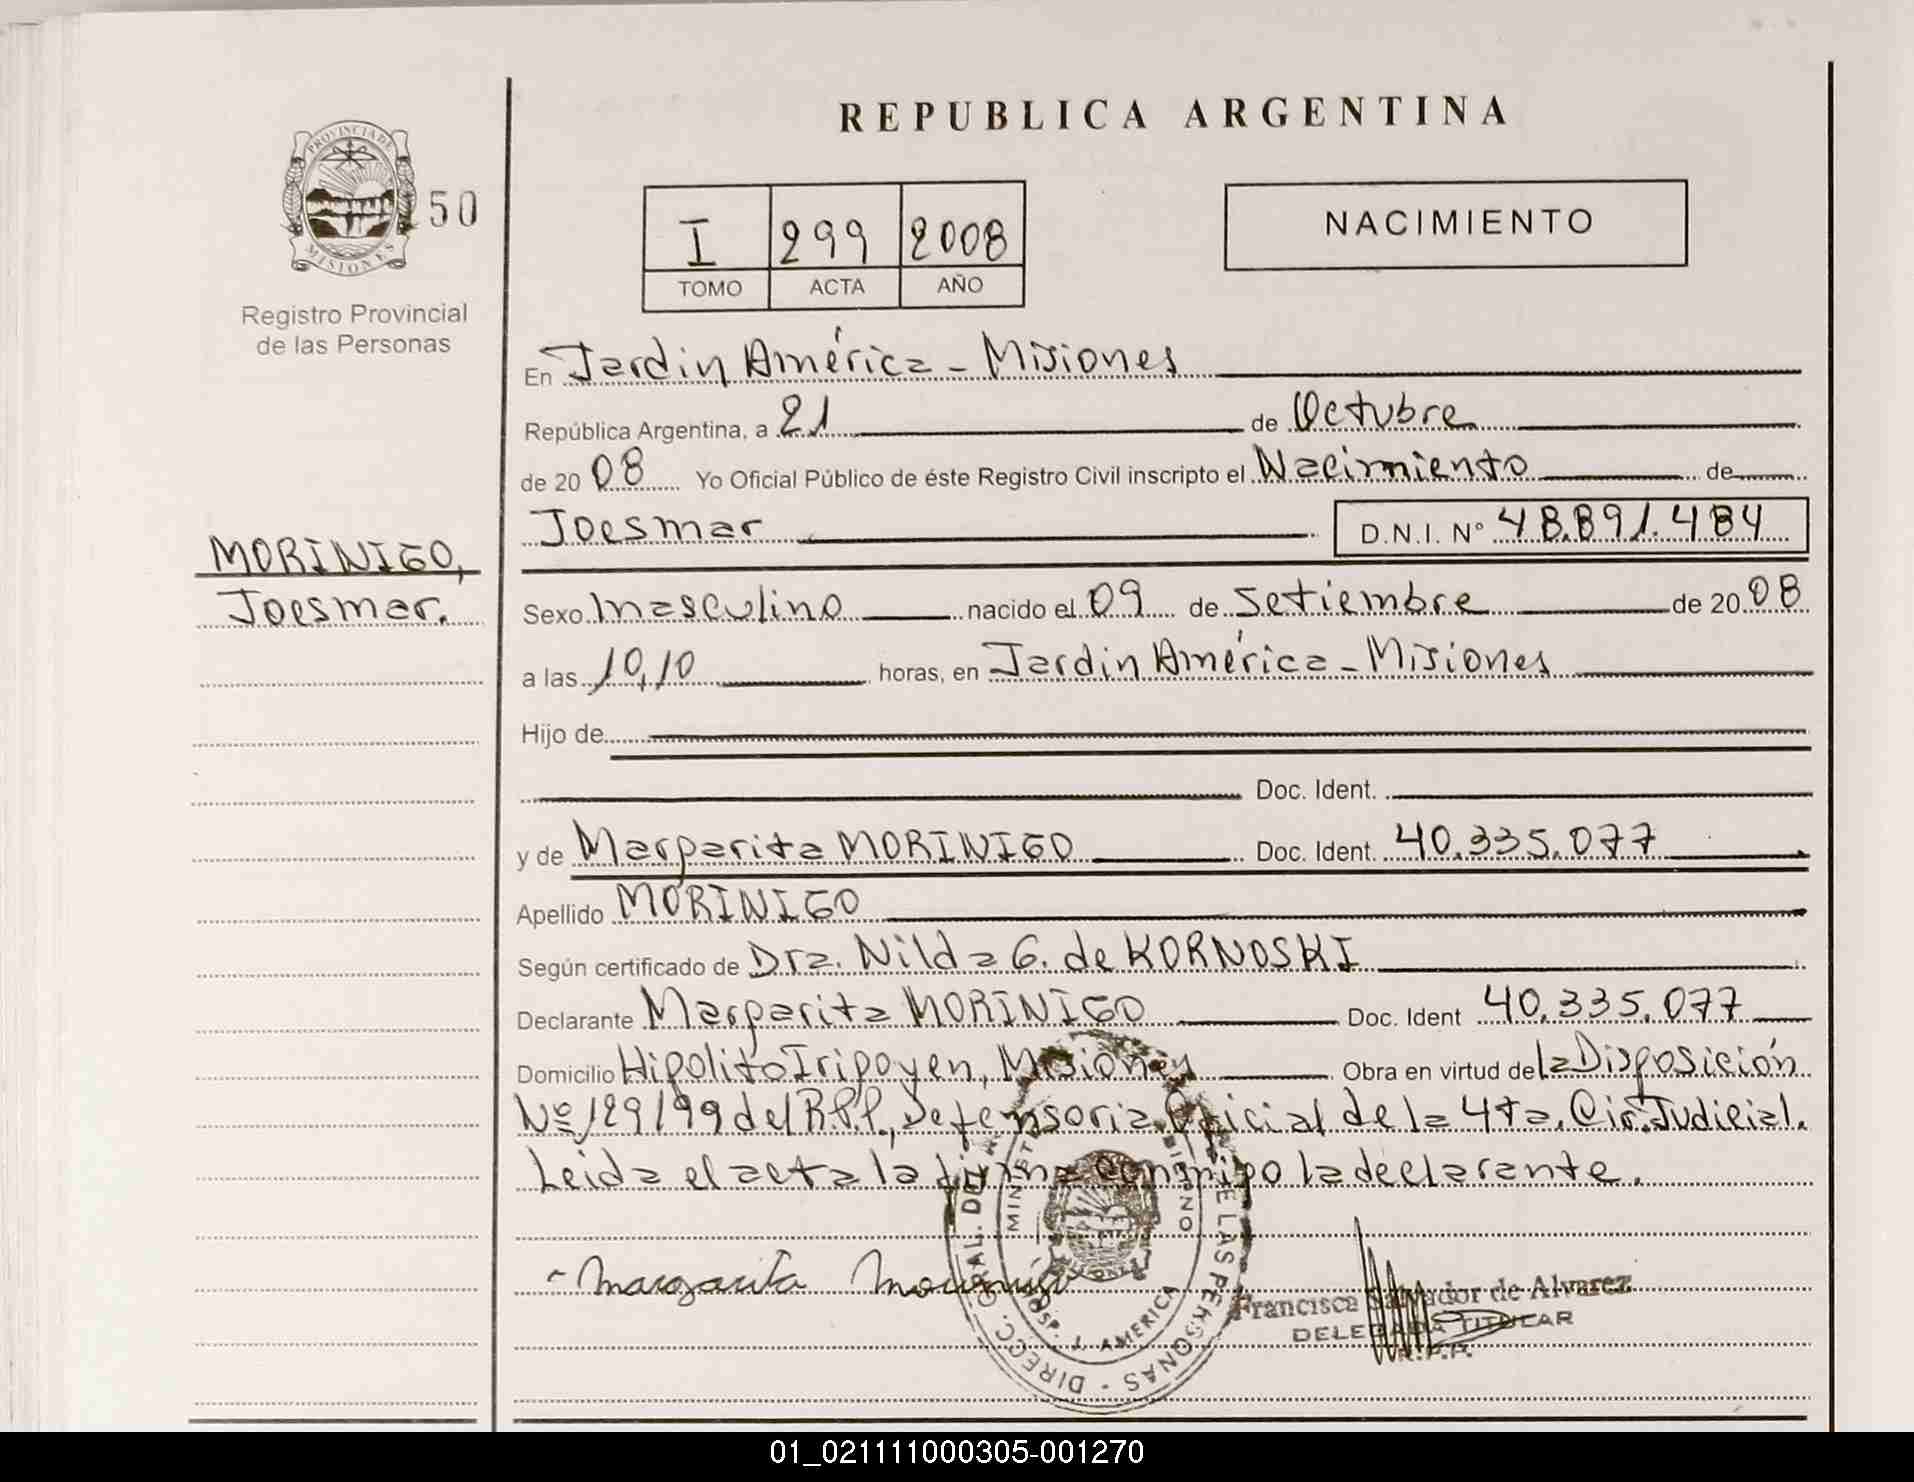 REPUBLICA ARGENTINA
PROVINCIA DE
MISIONES
50
Registro Provincial
de las Personas
I 299 2008
TOMO ACTA AÑO
NACIMIENTO
En Jardin América - Misiones
República Argentina, a 21 de Octubre
de 2008 Yo Oficial Público de éste Registro Civil inscripto el Nacimiento de
Joesmar D.N.I. N° 48.891.484
MORINIGO,
Joesmar.
Sexo masculino nacido el 09 de Setiembre de 2008
a las 10,10 horas, en Jardin América - Misiones
Hijo de
Doc. Ident.
y de Margarita MORINIGO Doc. Ident. 40.335.077
Apellido MORINIGO
Según certificado de Dra. Nilda G. de KORNOSKI
Declarante Margarita MORINIGO Doc. Ident 40.335.077
Domicilio Hipolito Irigoyen, Misiones Obra en virtud de la Disposición
Nº 129/99 del R.P.P., Defensoria Oficial de la 4ta. Cir. Judicial.
Leida el acta la firma conmigo la declarante.
Margarita Morinigo
DIRECC. GRAL. DE LAS PERSONAS
HOSP. J. AMERICA
Francisca Salvador de Alvarez
DELEGADA TITULAR
R.P.P.
01_021111000305-001270